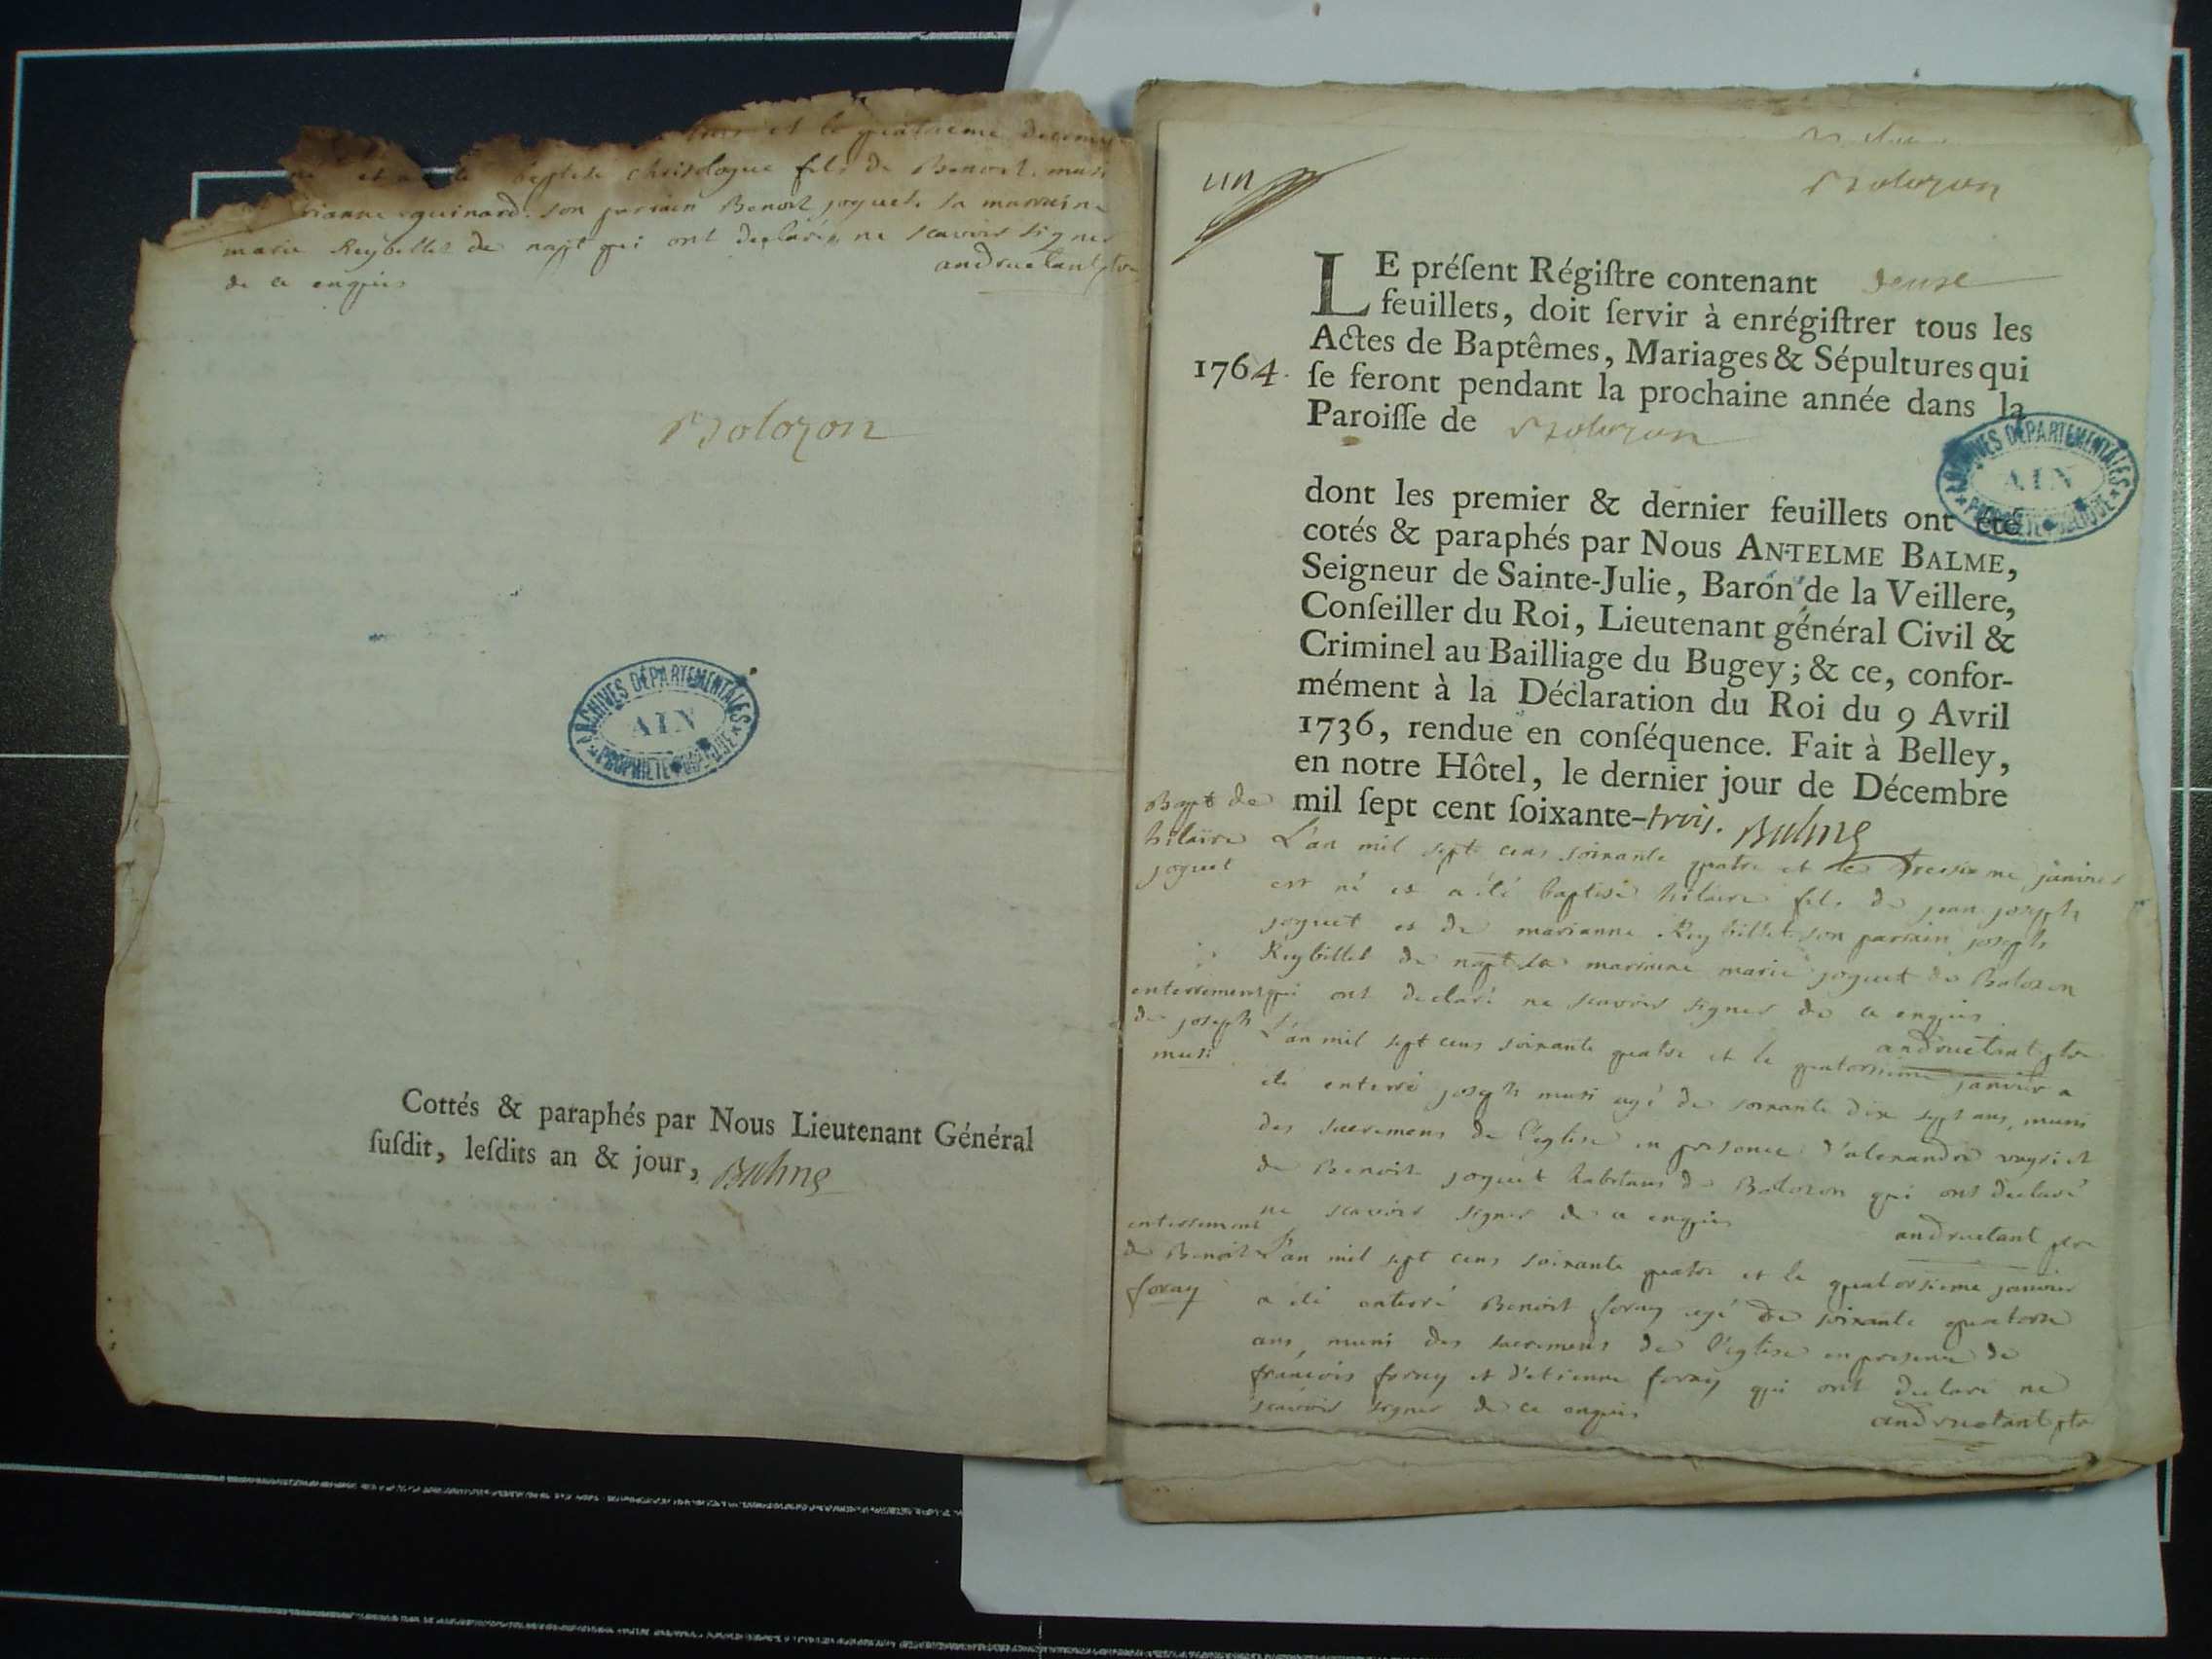 et le quatrieme decem
et a été baptisé chrisologue fils de Benoit musi
marianne guinard. son parrain Benoit joguet. sa marreine
marie Reybillet de napt qui ont declarés ne scavoir signer
de ce enquis
andruetant ptre
Bolozon
ARCHIVES DÉPARTEMENTALES
AIN
PROPRIÉTÉ PUBLIQUE
Cottés & paraphés par Nous Lieutenant Général
ſuſdit, leſdits an & jour, Balme
un
Bolozon
LE préſent Régiſtre contenant deuse
feuillets, doit ſervir à enrégiſtrer tous les
Actes de Baptêmes, Mariages & Sépultures qui
1764. ſe feront pendant la prochaine année dans la
Paroiſſe de Bolozon
ARCHIVES DÉPARTEMENTALES
AIN
PROPRIÉTÉ PUBLIQUE
dont les premier & dernier feuillets ont été
cotés & paraphés par Nous ANTELME BALME,
Seigneur de Sainte-Julie, Baron de la Veillere,
Conſeiller du Roi, Lieutenant général Civil &
Criminel au Bailliage du Bugey; & ce, confor-
mément à la Déclaration du Roi du 9 Avril
1736, rendue en conſéquence. Fait à Belley,
en notre Hôtel, le dernier jour de Décembre
mil ſept cent ſoixante-trois. Balme
Bapt de
hilaire
joguet
L'an mil sept cens soixante quatre et le tresieme janvier
est né et a été baptisé hilaire fils de jean joseph
joguet et de marianne Reybillet son parrain joseph
Reybillet de napt sa marreine marie joguet de Bolozon
qui ont declaré ne scavoir signer de ce enquis
andruetant ptre
enterrement
de joseph
musi
L'an mil sept cens soixante quatre et le quatorsieme janvier a
été enterré joseph musi agé de soixante dix sept ans, muni
des sacremens de l'eglise en presence d'alexandre et
de Benoit joguet habitans de Bolozon qui ont declaré
ne scavoir signer de ce enquis
andruetant ptre
enterrement
de Benoit
foray
L'an mil sept cens soixante quatre et le quatorsieme janvier
a été enterré Benoit foray agé de soixante quatorse
ans, muni des sacremens de l'eglise en presence de
francois foray et d'etienne foray qui ont declaré ne
scavoir signer de ce enquis
andruetant ptre